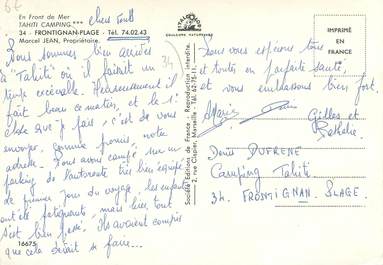 En Front de Mer
TAHITI CAMPING ***
34 - FRONTIGNAN-PLAGE - Tél. 74.02.43
Marcel JEAN, Propriétaire.
chers tous
34
Nous sommes bien arrivés
à Tahiti où il faisait un
temps Heureusement il
fait beau ce matin, et la 1ère
chose que je fais, c'est de vous
envoyer, comme promis, notre
adresse. Nous avons campé sur un
parking de l'autoroute très bien équipé
le premier jour du voyage, les enfants
ont été fatigants, mais hier, tout
s'est bien passé. Ils avaient compris
que cela devait se faire...
16675
Société Editions de France - Reproduction interdite.
2, rue Crispier, Marseille - Tél. 67-15-11
COULEURS NATURELLES
IMPRIMÉ
EN
FRANCE
Nous vous espérons tous
et toutes en parfaite santé,
et vous embrassons bien fort.
Marie Denis Gilles et
Nathalie.
Denis DUFRENE
Camping Tahiti
34. FRONTIGNAN. PLAGE.